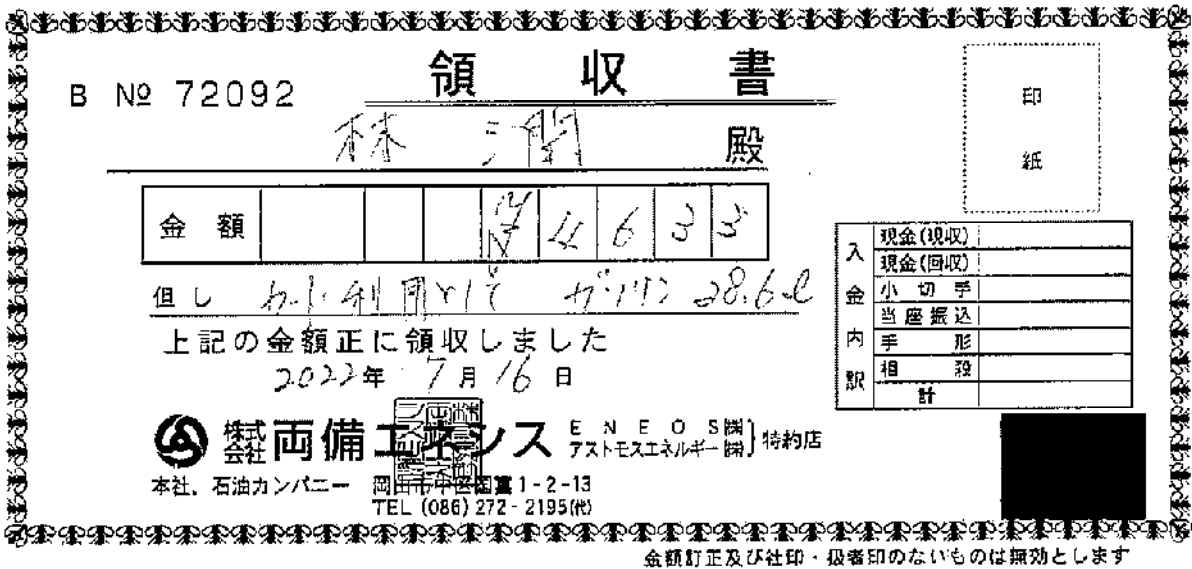 B № 72092
領収書
林 殿
印
紙
金額 ¥ 4 6 3 3
但し カード利用として ガソリン 28.6ℓ
上記の金額正に領収しました
2022年 7月 16日
入金内訳
現金(現収)
現金(回収)
小切手
当座振込
手形
相殺
計
株式会社 両備エネシス
ENEOS㈱
アストモスエネルギー㈱
特約店
本社、石油カンパニー 岡山市中区国富1-2-13
TEL (086) 272-2195㈹
金額訂正及び社印・扱者印のないものは無効とします